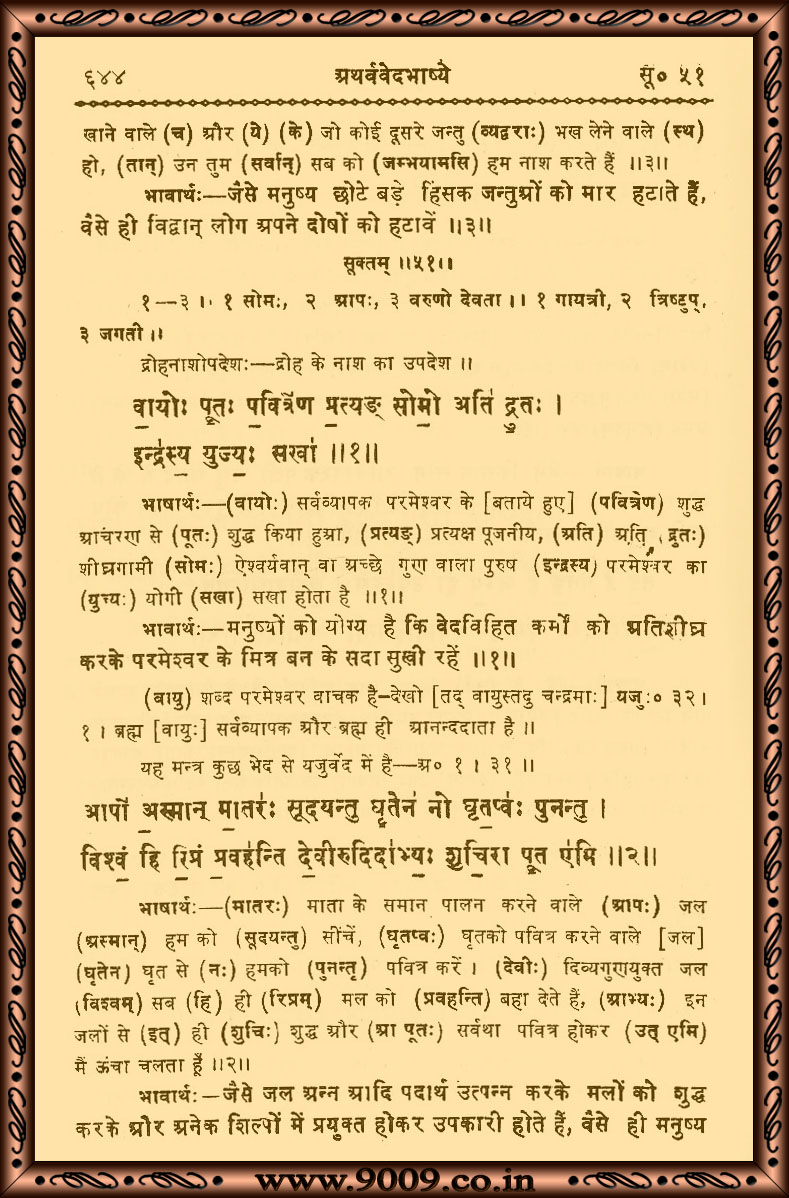 ६४४ अथर्ववेदभाष्ये सू० ५१
खाने वाले (च) और (ये) (के) जो कोई दूसरे जन्तु (व्यद्वराः) भख लेने वाले (स्थ)
हो, (तान्) उन तुम (सर्वान्) सब को (जम्भयामसि) हम नाश करते हैं ॥३॥
भावार्थः—जैसे मनुष्य छोटे बड़े हिंसक जन्तुओं को मार हटाते हैं,
वैसे ही विद्वान् लोग अपने दोषों को हटावें ॥३॥
सूक्तम् ॥५१॥
१—३ ॥ १ सोमः, २ आपः, ३ वरुणो देवता ॥ १ गायत्री, २ त्रिष्टुप्,
३ जगती ॥
द्रोहनाशोपदेशः—द्रोह के नाश का उपदेश ॥
वा॒योः पू॒तः प॒वित्रे॑ण प्र॒त्यङ् सोमो॒ अति॑ द्रु॒तः ।
इन्द्र॑स्य॒ युज्यः॒ सखा॑ ॥१॥
भाषार्थः—(वायोः) सर्वव्यापक परमेश्वर के [बताये हुए] (पवित्रेण) शुद्ध
आचरण से (पूतः) शुद्ध किया हुआ, (प्रत्यङ्) प्रत्यक्ष पूजनीय, (अति) अति (द्रुतः)
शीघ्रगामी (सोमः) ऐश्वर्यवान् वा अच्छे गुण वाला पुरुष (इन्द्रस्य) परमेश्वर का
(युज्यः) योगी (सखा) सखा होता है ॥१॥
भावार्थः—मनुष्यों को योग्य है कि वेदविहित कर्मों को अतिशीघ्र
करके परमेश्वर के मित्र बन के सदा सुखी रहें ॥१॥
(वायु) शब्द परमेश्वर वाचक है—देखो [तद् वायुस्तदु चन्द्रमाः] यजुः० ३२।
१ । ब्रह्म [वायुः] सर्वव्यापक और ब्रह्म ही आनन्ददाता है ॥
यह मन्त्र कुछ भेद से यजुर्वेद में है—अ० १ । ३१ ॥
आपो॑ अ॒स्मान् मा॒तरः॑ सूदयन्तु घृ॒तेन॑ नो घृत॒प्वः॑ पुनन्तु ।
विश्वं॒ हि रि॒प्रं प्र॒वह॑न्ति दे॒वीरुदिदा॑भ्यः॒ शुचि॒रा पू॒त ए॑मि ॥२॥
भाषार्थः—(मातरः) माता के समान पालन करने वाले (आपः) जल
(अस्मान्) हम को (सूदयन्तु) सींचें, (घृतप्वः) घृतको पवित्र करने वाले [जल]
(घृतेन) घृत से (नः) हमको (पुनन्तु) पवित्र करें । (देवीः) दिव्यगुणयुक्त जल
(विश्वम्) सब (हि) ही (रिप्रम्) मल को (प्रवहन्ति) बहा देते हैं, (आभ्यः) इन
जलों से (इत्) ही (शुचिः) शुद्ध और (आ पूतः) सर्वथा पवित्र होकर (उत् एमि)
मैं ऊंचा चलता हूँ ॥२॥
भावार्थः—जैसे जल अन्न आदि पदार्थ उत्पन्न करके मलों को शुद्ध
करके और अनेक शिल्पों में प्रयुक्त होकर उपकारी होते हैं, वैसे ही मनुष्य
www.9009.co.in